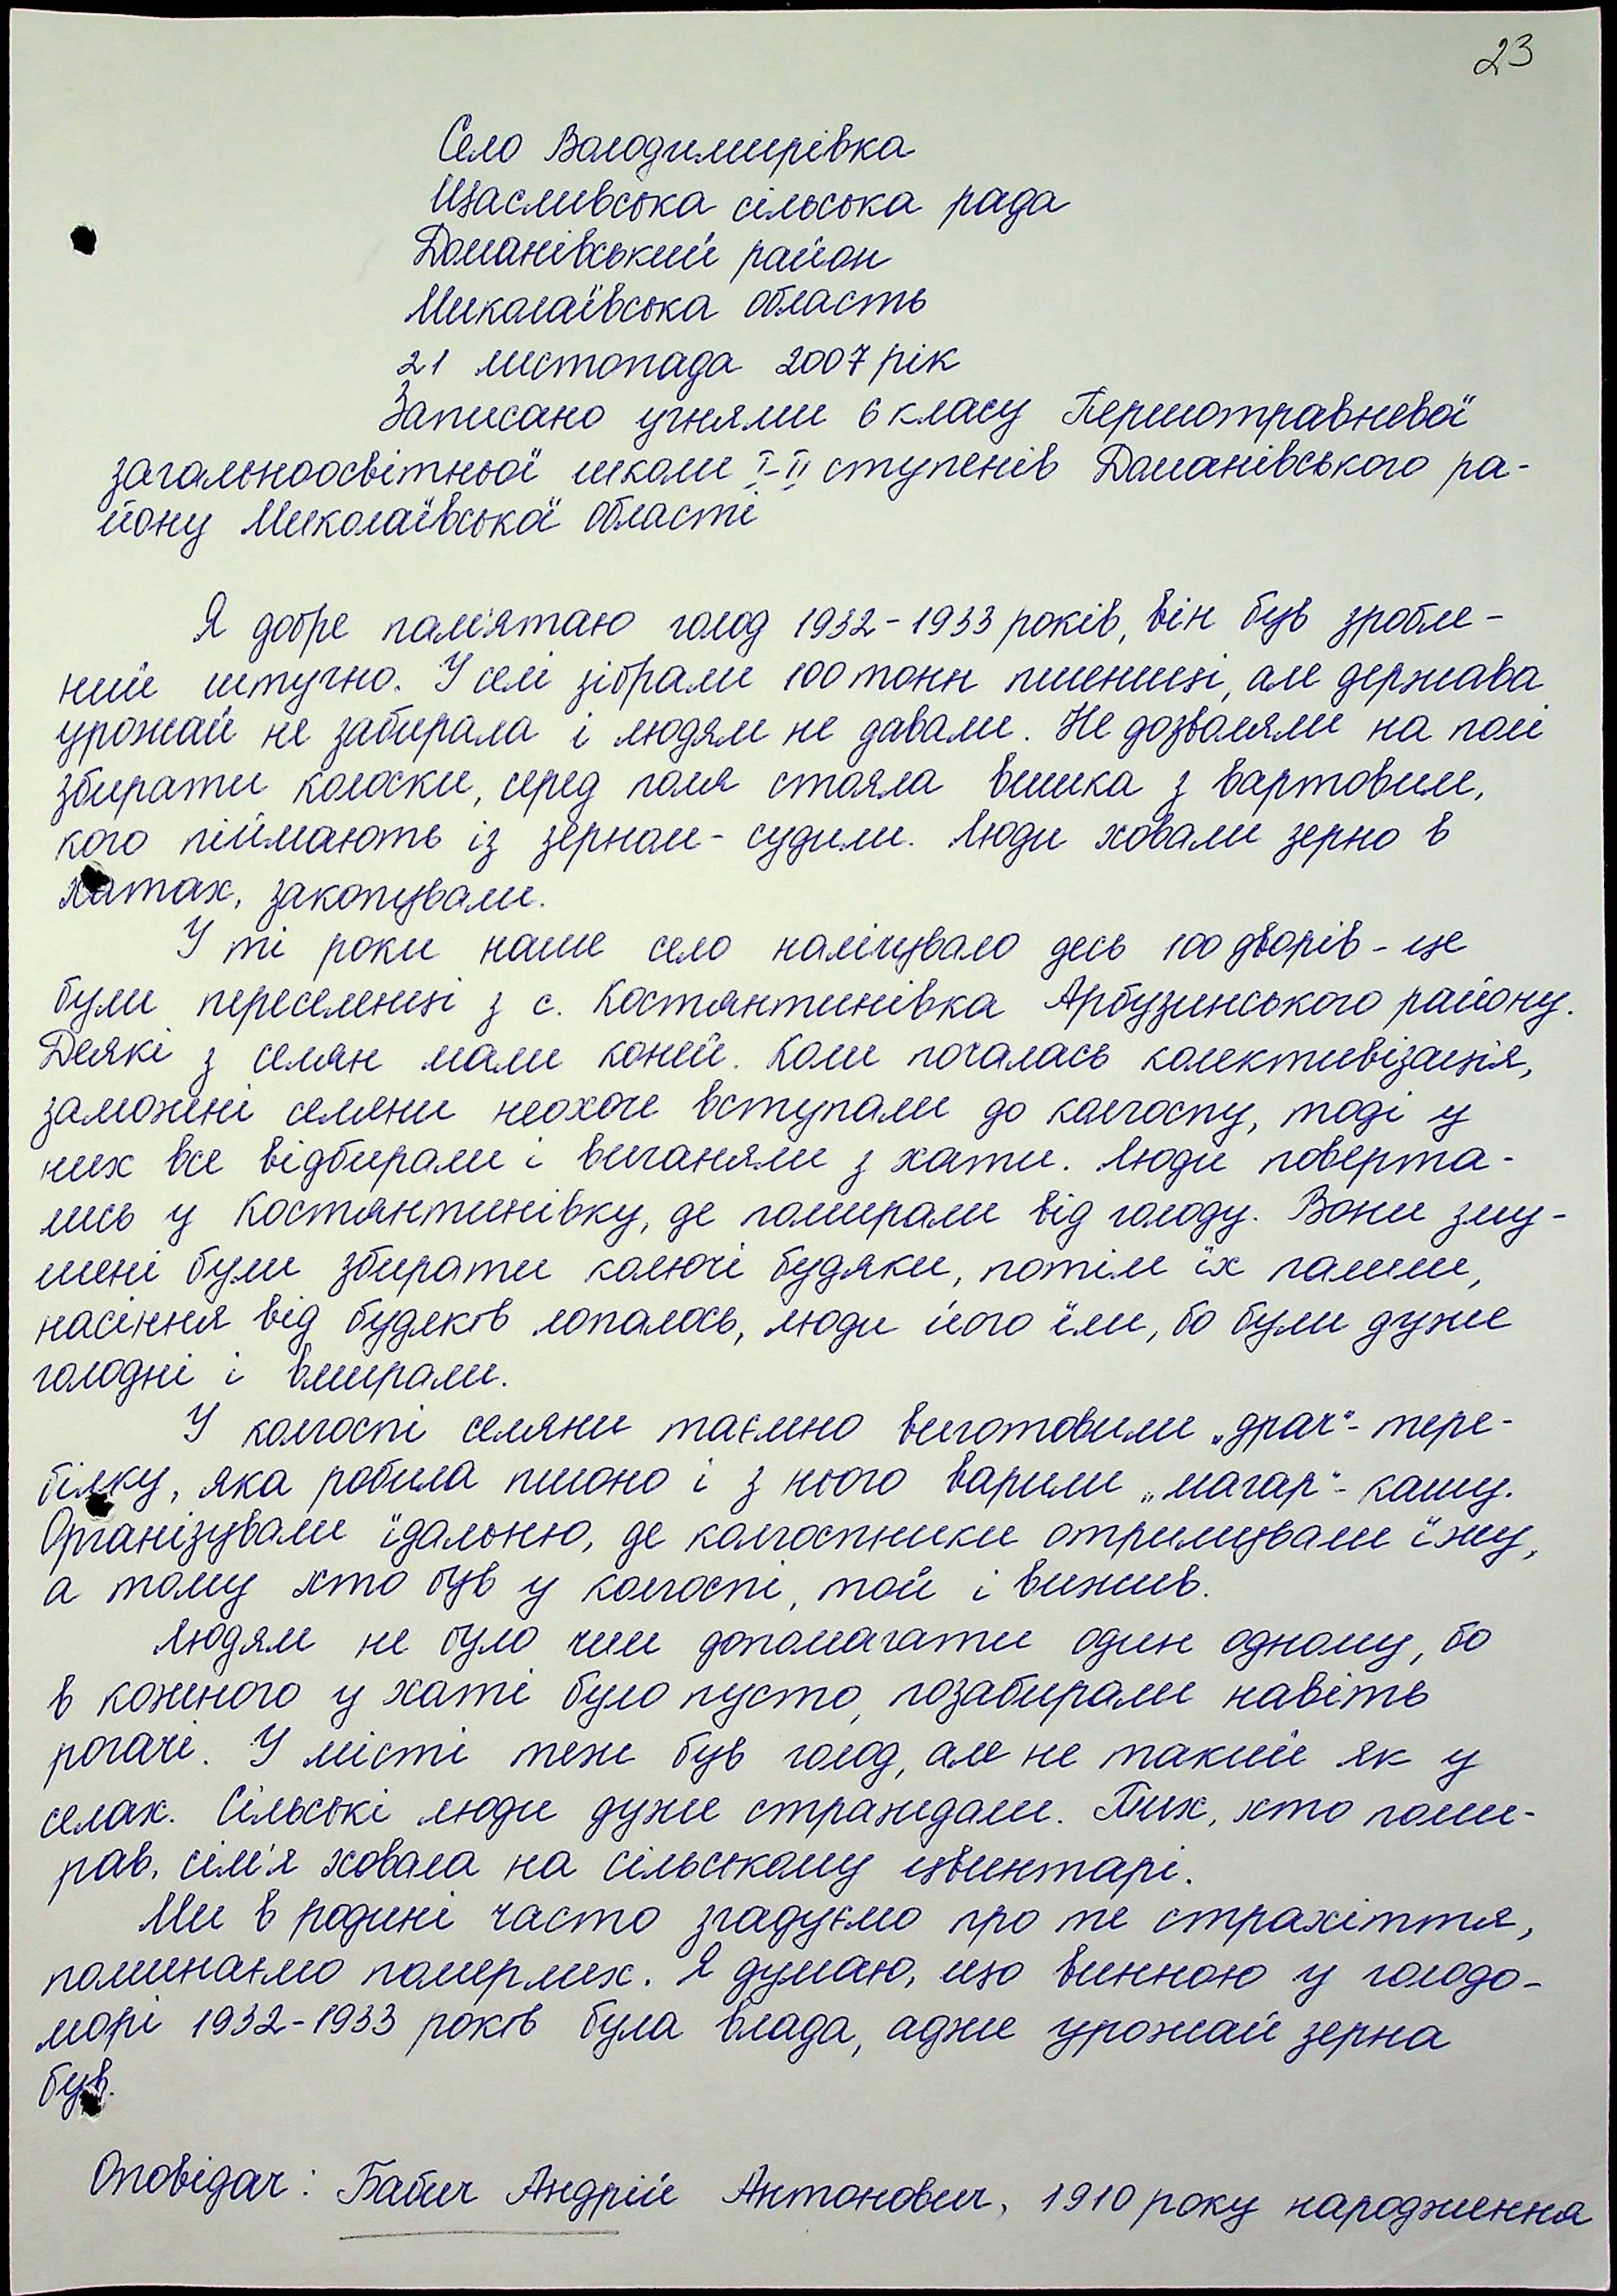 23
Село Володимирівка
Щасливська сільська рада
Доманівський район
Миколаївська область
21 листопада 2007 рік
Записано учнями 6 класу Першотравневої
загальноосвітньої школи І-ІІ ступенів Доманівського ра-
йону Миколаївської області
Я добре пам'ятаю голод 1932-1933 років, він був зробле-
ний штучно. У селі зібрали 100 тонн пшениці, але держава
урожай не забирала і людям не давали. Не дозволяли на полі
збирати колоски, серед поля стояла вишка з вартовим,
кого піймають із зерном - судили. Люди ховали зерно в
хатах, закопували.
У ті роки наше село налічувало десь 100 дворів - це
були переселенці з с. Костянтинівка Арбузинського району.
Деякі з селян мали коней. Коли почалась колективізація,
заможні селяни неохоче вступали до колгоспу, тоді у
них все відбирали і виганяли з хати. Люди поверта-
лись у Костянтинівку, де помирали від голоду. Вони зму-
шені були збирати колючі будяки, потім їх палили,
насіння від будяків лопалось, люди його їли, бо були дуже
голодні і вмирали.
У колгоспі селяни таємно виготовили „драч"- тере-
білку, яка робила пшоно і з нього варили „магар"- кашу.
Організували їдальню, де колгоспники отримували їжу,
а тому хто був у колгоспі, той і вижив.
Людям не було чим допомагати один одному, бо
в кожного у хаті було пусто, позабирали навіть
рогачі. У місті теж був голод, але не такий як у
селах. Сільські люди дуже страждали. Тих, хто поми-
рав, сім'я ховала на сільському цвинтарі.
Ми в родині часто згадуємо про те страхіття,
поминаємо померлих. Я думаю, що винною у голодо-
морі 1932-1933 років була влада, адже урожай зерна
був.
Оповідач: Бабич Андрій Антонович, 1910 року народження